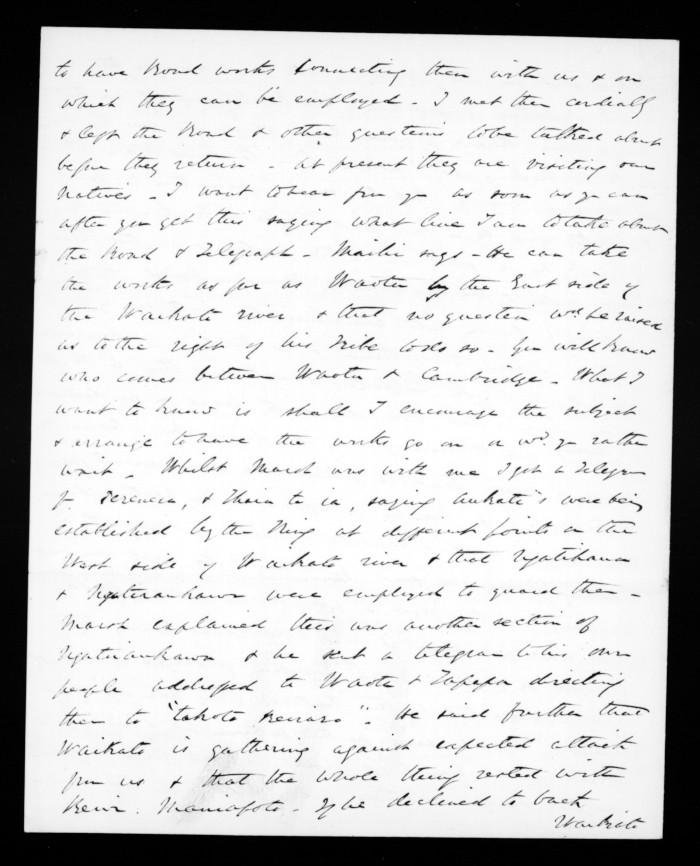 to have Road works connecting them with us & on
which they can be employed - I met them cordially
& left the Road & other questions to be talked about
before they return - At present they are visiting our
Natives - I want to hear from you as soon as you can
after you get this saying what line I am to take about
the Road & Telegraph - Maihi says - He can take
the works as far as Waotu by the East side of
the Waikato river & that no question wd. be raised
as to the right of his Tribe to do so - You will know
who comes between Waotu & Cambridge - What I
want to know is shall I encourage the subject
& arrange to have the works go on or wd. you rather
wait - Whilst Marsh was with me I got a Telegram
f. & saying aukati's were being
established by the King at different points on the
West side of Waikato river & that Ngatihaua
& Ngatiraukawa were employed to guard them -
Marsh explained this was another section of
Ngatiraukawa & he sent a telegram to his own
people addressed to Waotu & Tapapa directing
them to "takoto " - He said further that
Waikato is gathering against expected attack
from us & that the whole thing rested with
Rewi Maniapoto - If he declined to back
Waikato